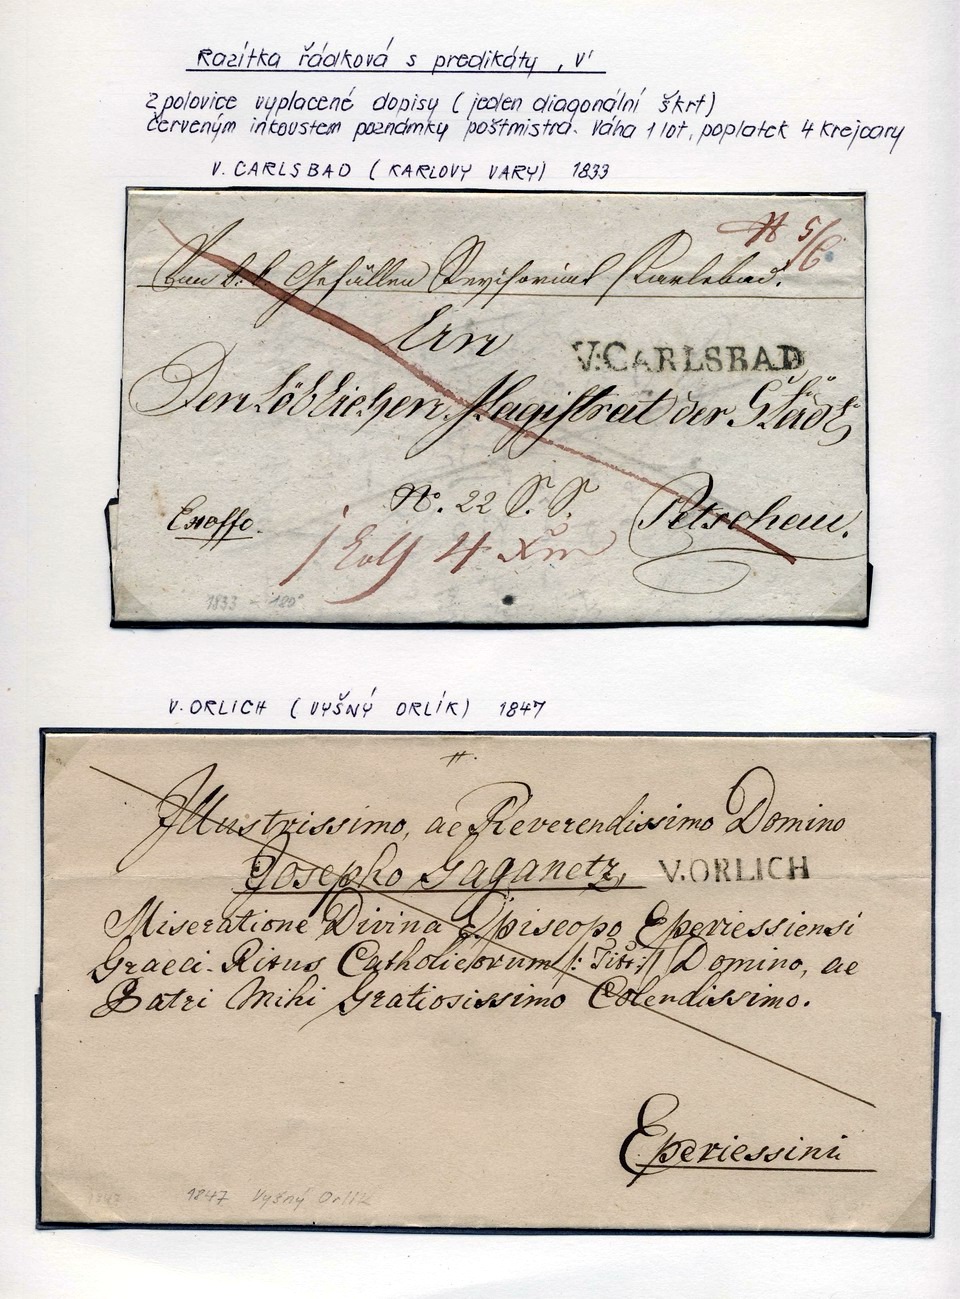 Razítka řádková s predikáty „V"
Z polovice vyplacené dopisy (jeden diagonální škrt)
červeným inkoustem poznámky poštmistra. Váha 1 lot, poplatek 4 krejcary
V. CARLSBAD (KARLOVY VARY) 1833
N 5/6
Gefällen Karlsbad.
V:CARLSBAD
Den Löblichen Magistrat der Stadt
No. 22
Exoffo.
Petschau.
1 4
1833
V. ORLICH (VYŠNÝ ORLÍK) 1847
Illustrissimo, ac Reverendissimo Domino
Josepho Gaganetz,
V.ORLICH
Miseratione Divina Episcopo Eperiessiensi
Graeci Ritus Catholicorum /: Titt: / Domino, ac
Patri Mihi Gratiosissimo Colendissimo.
Eperiessini
1847 Vyšný Orlík